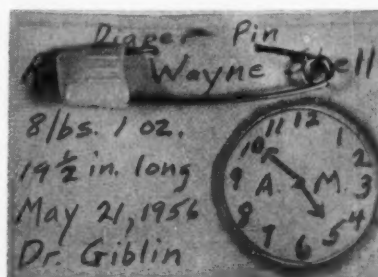 Diaper Pin
Wayne
8 lbs. 1 oz.
19 1/2 in. long
May 21, 1956
Dr. Giblin
12
1
2
3
4
5
6
7
8
9
10
11
A. M.